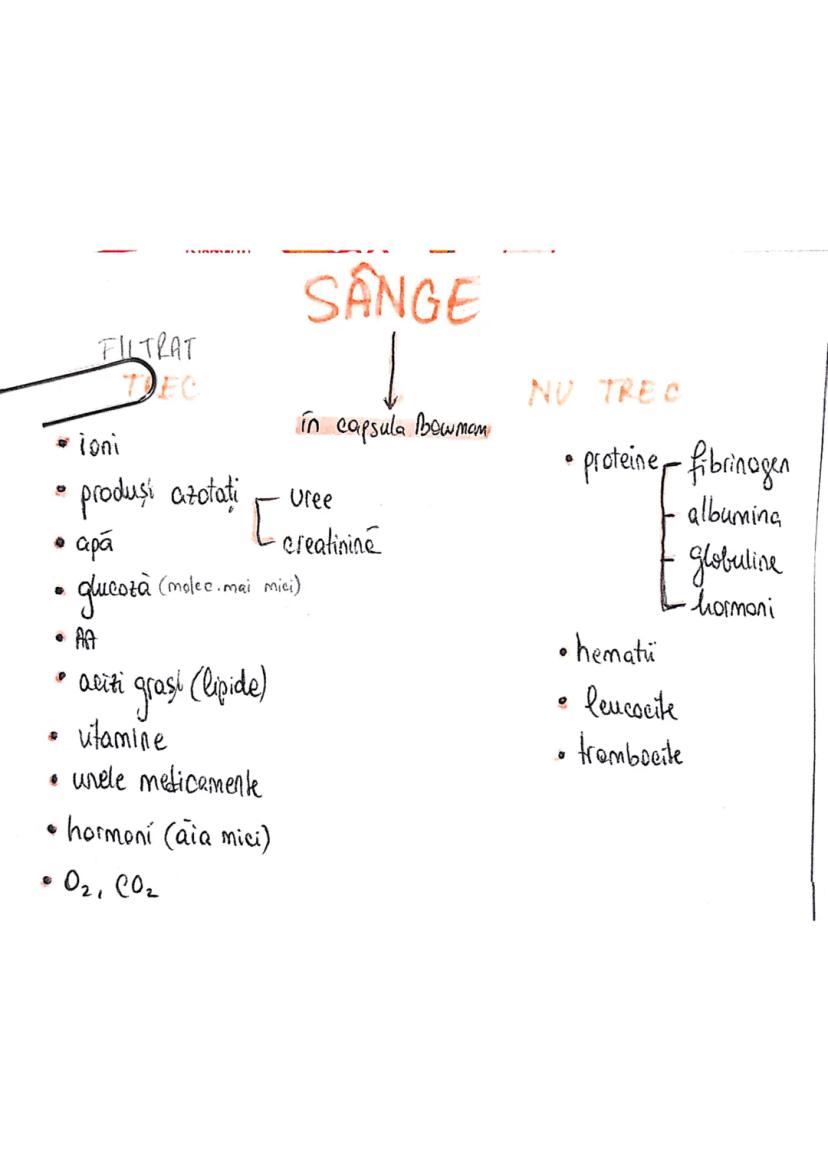 SÂNGE
FILTRAT
TREC
în capsula Bowman
NU TREC
• ioni
• produși azotați
uree
creatinină
• apă
• glucoză (molec. mai mici)
• AA
• acizi grași (lipide)
• vitamine
• unele medicamente
• hormoni (ăia mici)
• O₂, CO₂
• proteine
fibrinogen
albumina
globuline
hormoni
• hematii
• leucocite
• trombocite